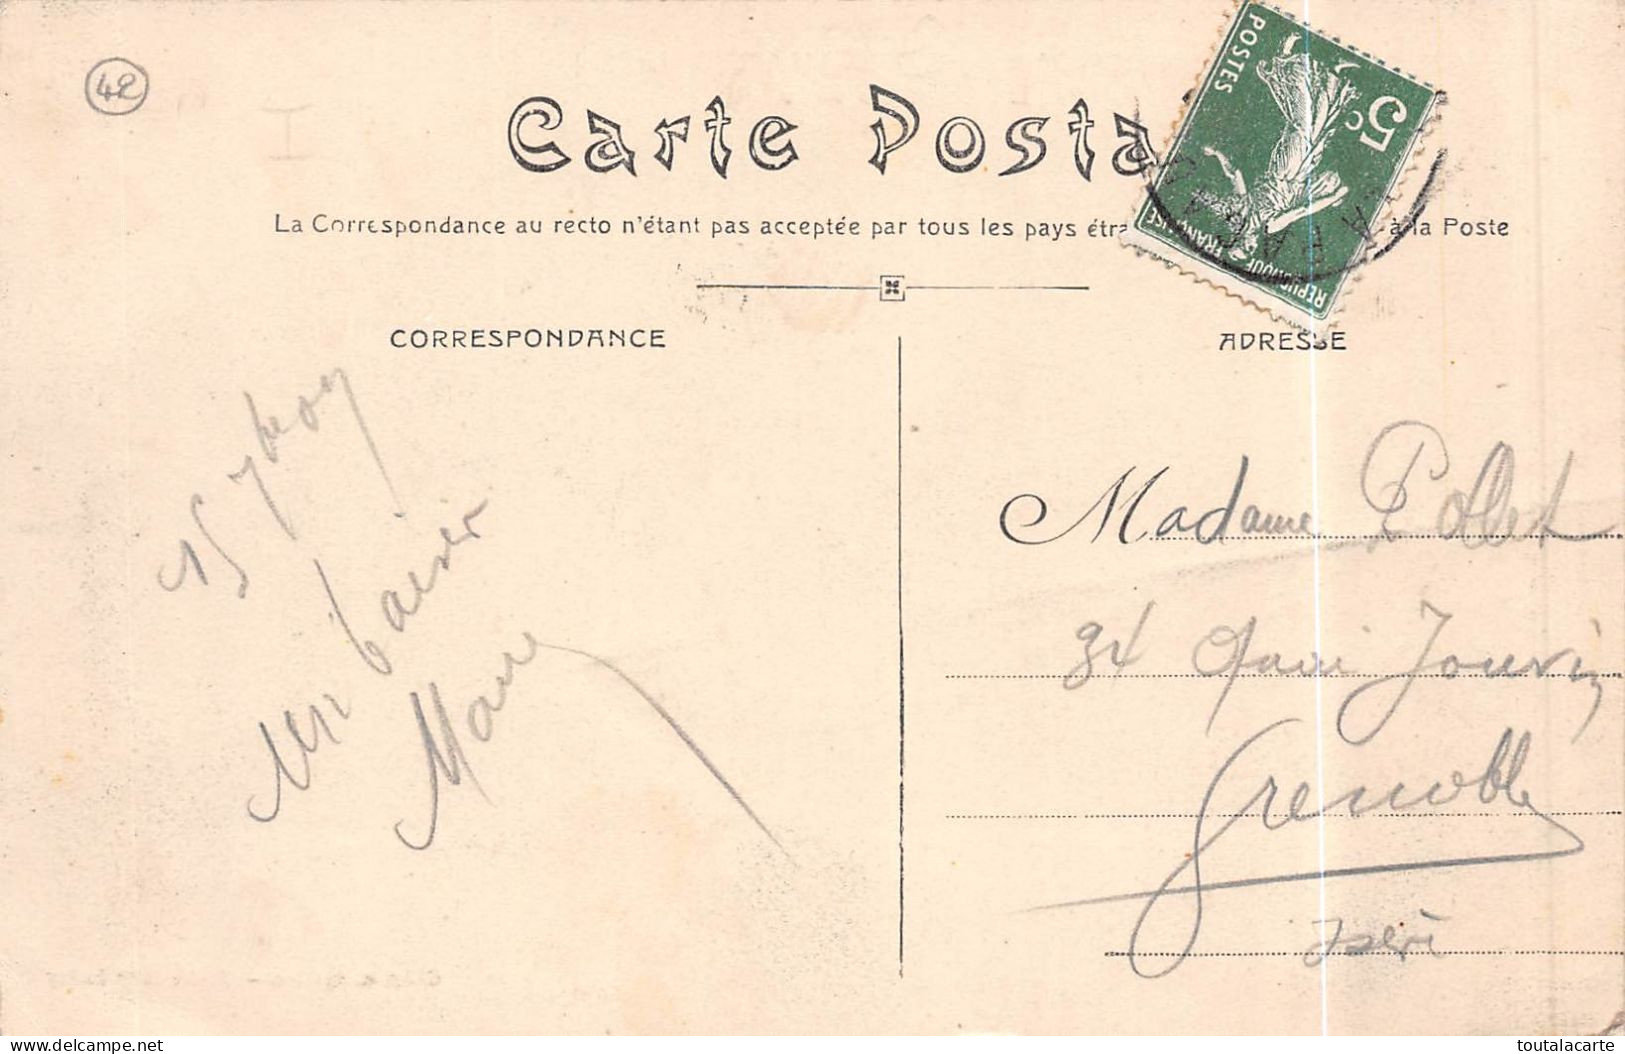 42
Carte Posta
La Correspondance au recto n'étant pas acceptée par tous les pays étra à la Poste
POSTES
5c
REPUBLIQUE FRANÇAISE
CORRESPONDANCE
ADRESSE
15 7bre 07
un baiser
Marie
Madame Pollet
34 Quai Jouvin
Grenoble
Isère
toutalacarte